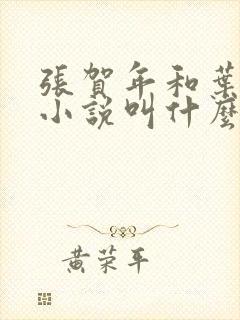 張賀年和葉
小說叫什麼
黃荣平